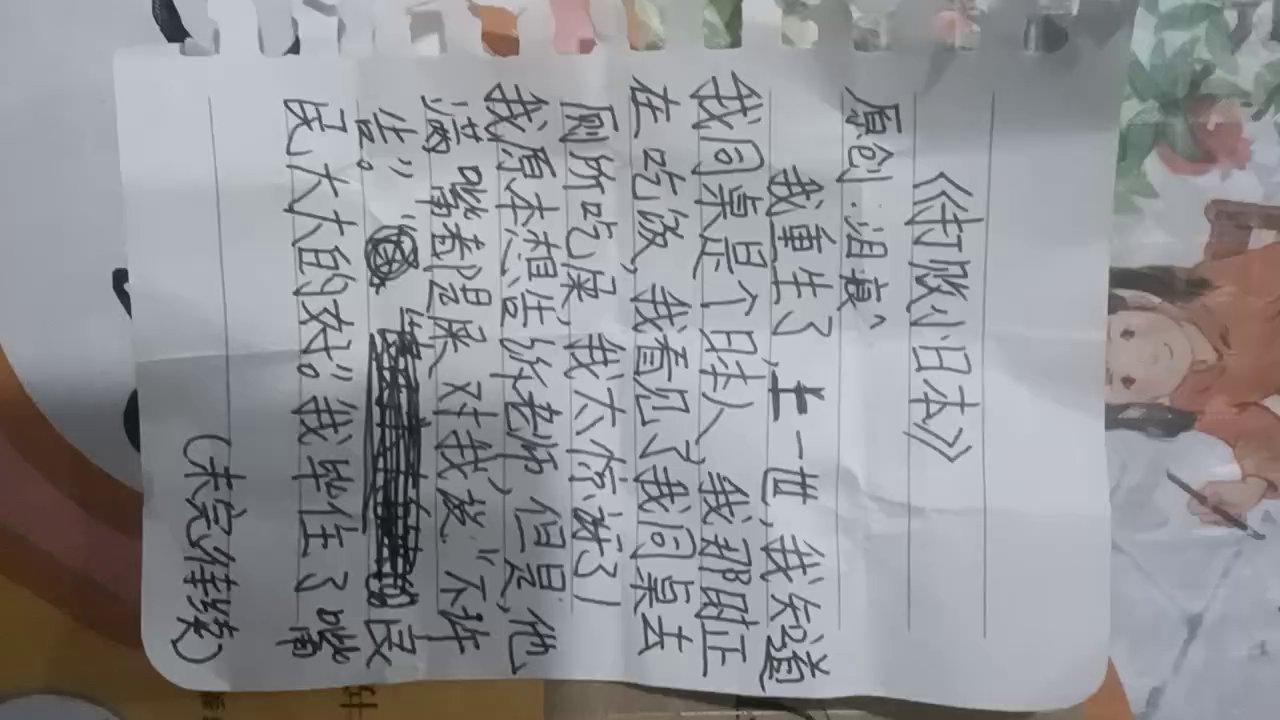 《打败小日本》
原创：泪哀
我重生了,上一世,我知道
我同桌是个日本人,我那时正
在吃饭,我看见了我同桌去
厕所吃屎,我太惊讶了!
我原本想告给老师,但是,他
满嘴都是屎,对我说:“不许
告。”
“良
民大大的好。”我毕住了嘴
(未完待续)